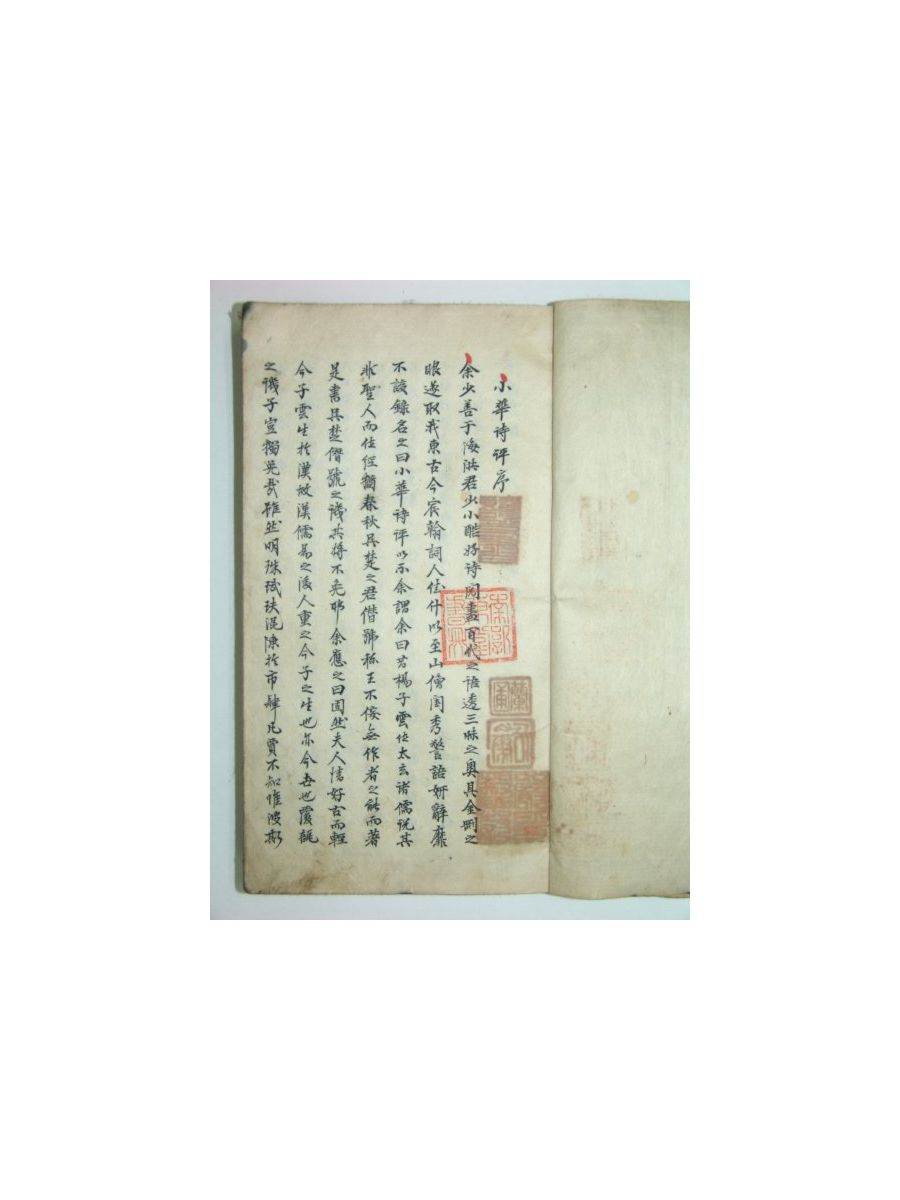 小華詩評序
余少善于海洪君少小酷好詩閱盡百代之語透三昧之奧具金刪之
眼遂取我東古今宸翰詞人佳什以至山僧閨秀警語姸辭靡
不該錄名之曰小華詩評以示余謂余曰若楊子雲作太玄諸儒譏其
非聖人而作經猶春秋吳楚之君僭號稱王不侫無作者之能而著
是書吳楚僭號之譏其將不免耶余應之曰固然夫人情好古而輕
今子雲生於漢故漢儒為之後人重之今子之生也亦今吾也覆瓿
之譏子豈獨免哉雖然明珠珷玞混陳於市肆凡賈不知惟波斯